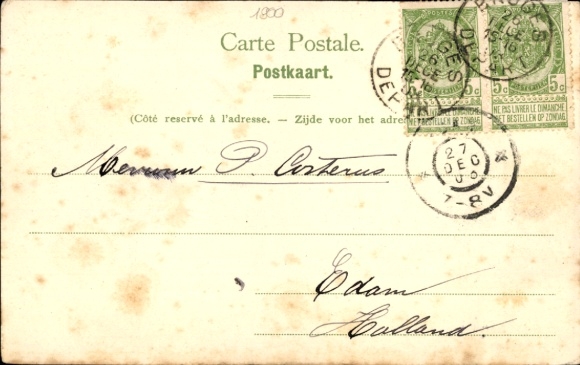 1900
Carte Postale.
Postkaart.
(Côté reservé à l'adresse. — Zijde voor het adre
BRUGES
26
DECE
15-16
DEPART
5c 5c
NE PAS LIVRER LE DIMANCHE
NIET BESTELLEN OP ZONDAG
NE PAS LIVRER LE DIMANCHE
NIET BESTELLEN OP ZONDAG
27
DEC
7-8V
P. Costerus
Edam
Holland.